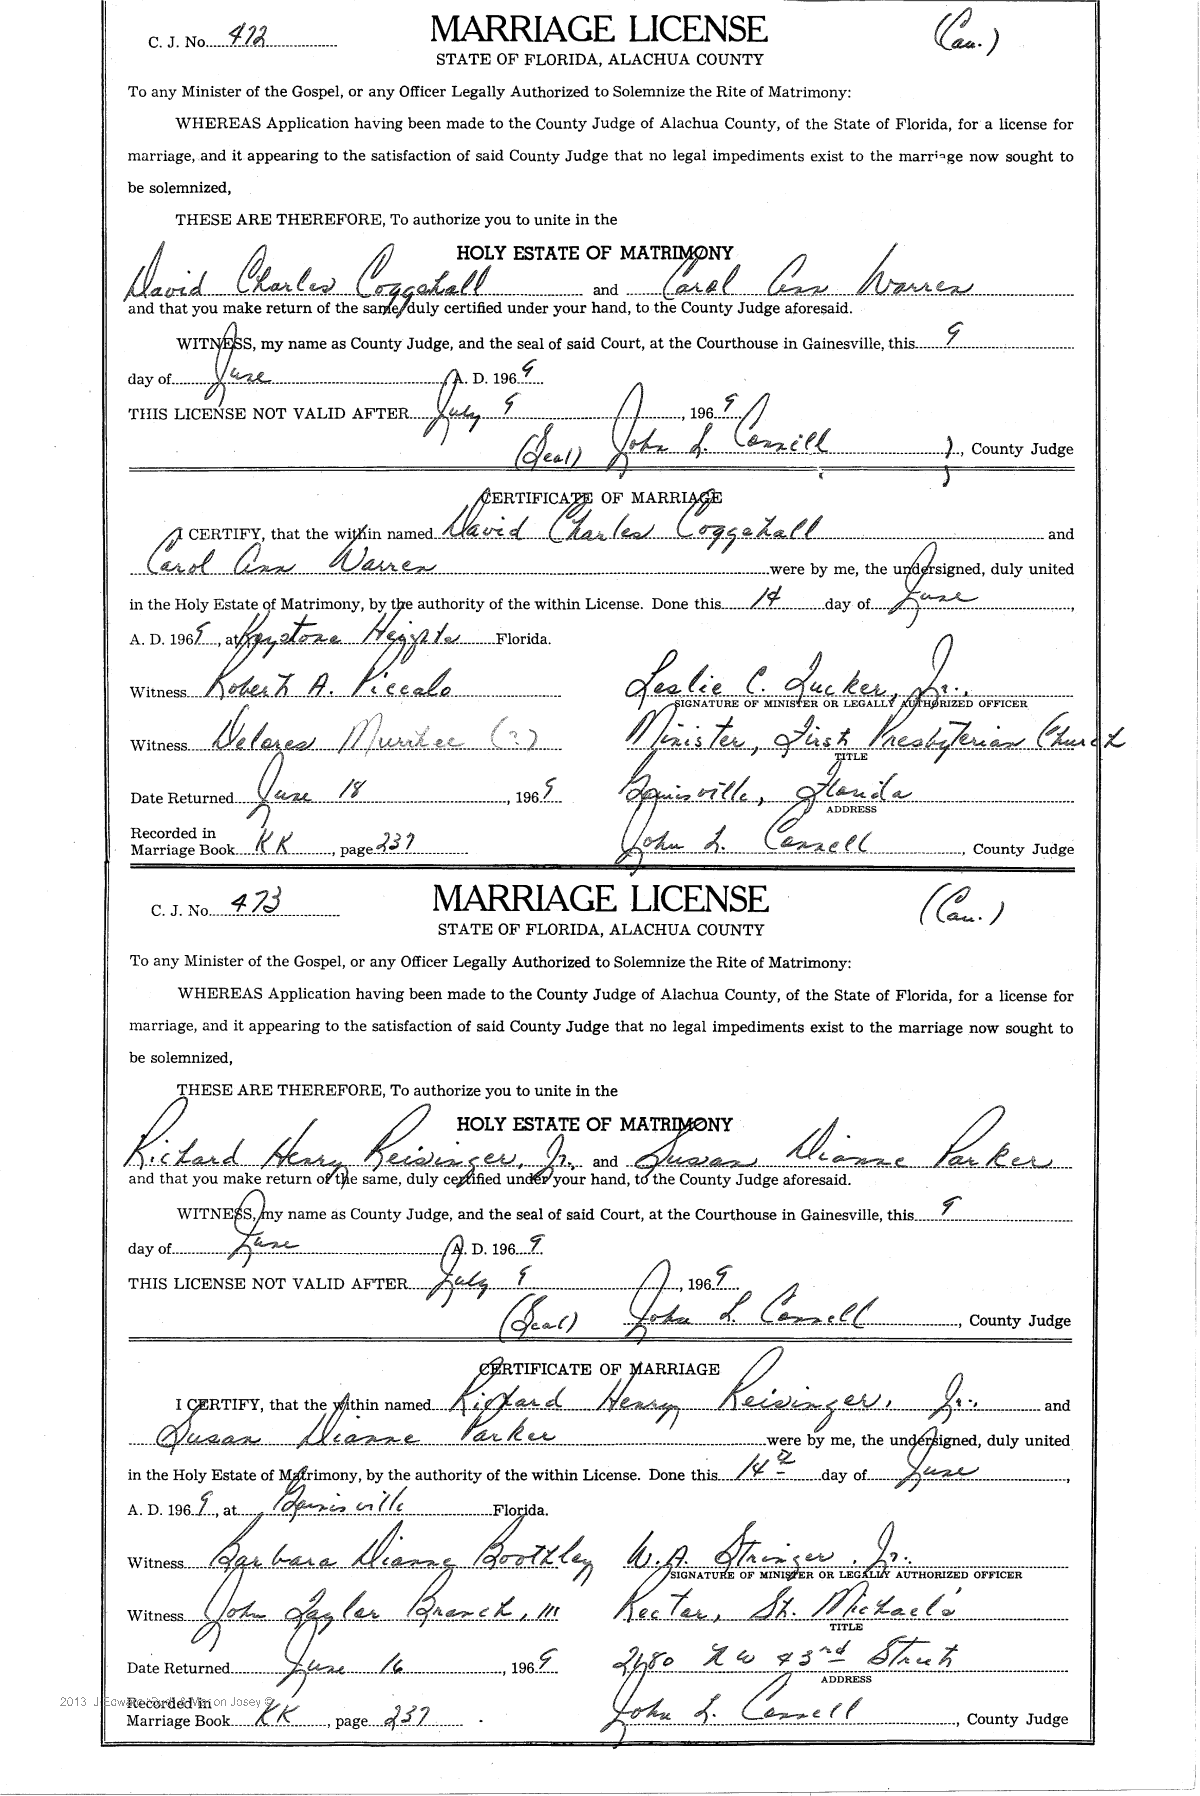 C. J. No. 472 MARRIAGE LICENSE (Cau.)
STATE OF FLORIDA, ALACHUA COUNTY
To any Minister of the Gospel, or any Officer Legally Authorized to Solemnize the Rite of Matrimony:
WHEREAS Application having been made to the County Judge of Alachua County, of the State of Florida, for a license for
marriage, and it appearing to the satisfaction of said County Judge that no legal impediments exist to the marriage now sought to
be solemnized,
THESE ARE THEREFORE, To authorize you to unite in the
HOLY ESTATE OF MATRIMONY
David Charles Coggshall and Carol Ann Warren
and that you make return of the same, duly certified under your hand, to the County Judge aforesaid.
WITNESS, my name as County Judge, and the seal of said Court, at the Courthouse in Gainesville, this 9
day of June A. D. 1969
THIS LICENSE NOT VALID AFTER July 9, 1969
(Seal) John L. Connell, County Judge
CERTIFICATE OF MARRIAGE
I CERTIFY, that the within named David Charles Coggshall and
Carol Ann Warren were by me, the undersigned, duly united
in the Holy Estate of Matrimony, by the authority of the within License. Done this 14 day of June,
A. D. 1969, at Keystone Heights Florida.
Witness Robert A. Piccalo Leslie C. Tucker, Jr.,
SIGNATURE OF MINISTER OR LEGALLY AUTHORIZED OFFICER
Witness Delores Murrhee (?) Minister, First Presbyterian Church
TITLE
Date Returned June 18, 1969 Gainsville, Florida
ADDRESS
Recorded in
Marriage Book KK, page 237 John L. Connell, County Judge
C. J. No. 473 MARRIAGE LICENSE (Cau.)
STATE OF FLORIDA, ALACHUA COUNTY
To any Minister of the Gospel, or any Officer Legally Authorized to Solemnize the Rite of Matrimony:
WHEREAS Application having been made to the County Judge of Alachua County, of the State of Florida, for a license for
marriage, and it appearing to the satisfaction of said County Judge that no legal impediments exist to the marriage now sought to
be solemnized,
THESE ARE THEREFORE, To authorize you to unite in the
HOLY ESTATE OF MATRIMONY
Richard Henry Reisinger, Jr., and Susan Dianne Parker
and that you make return of the same, duly certified under your hand, to the County Judge aforesaid.
WITNESS, my name as County Judge, and the seal of said Court, at the Courthouse in Gainesville, this 9
day of June A. D. 1969.
THIS LICENSE NOT VALID AFTER July 9, 1969
(Seal) John L. Connell, County Judge
CERTIFICATE OF MARRIAGE
I CERTIFY, that the within named Richard Henry Reisinger, Jr., and
Susan Dianne Parker were by me, the undersigned, duly united
in the Holy Estate of Matrimony, by the authority of the within License. Done this 14th day of June,
A. D. 1969, at Gainisville Florida.
Witness Barbara Dianne Boothley W. A. Stringer, Jr.
SIGNATURE OF MINISTER OR LEGALLY AUTHORIZED OFFICER
Witness John Taylor Branch, III Rector, St. Michael's
TITLE
Date Returned June 16, 1969 2680 NW 43rd Street
ADDRESS
Recorded in
Marriage Book KK, page 237 John L. Connell, County Judge